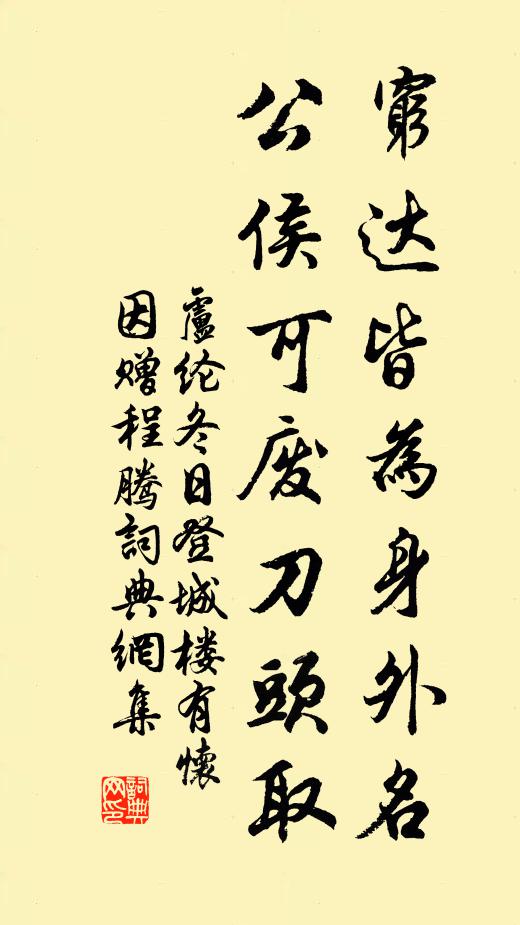 窮达皆為身外名
公侯可废刀頭取
盧纶冬日登城楼有懷
因赠程腾詞典網集
詞典网印